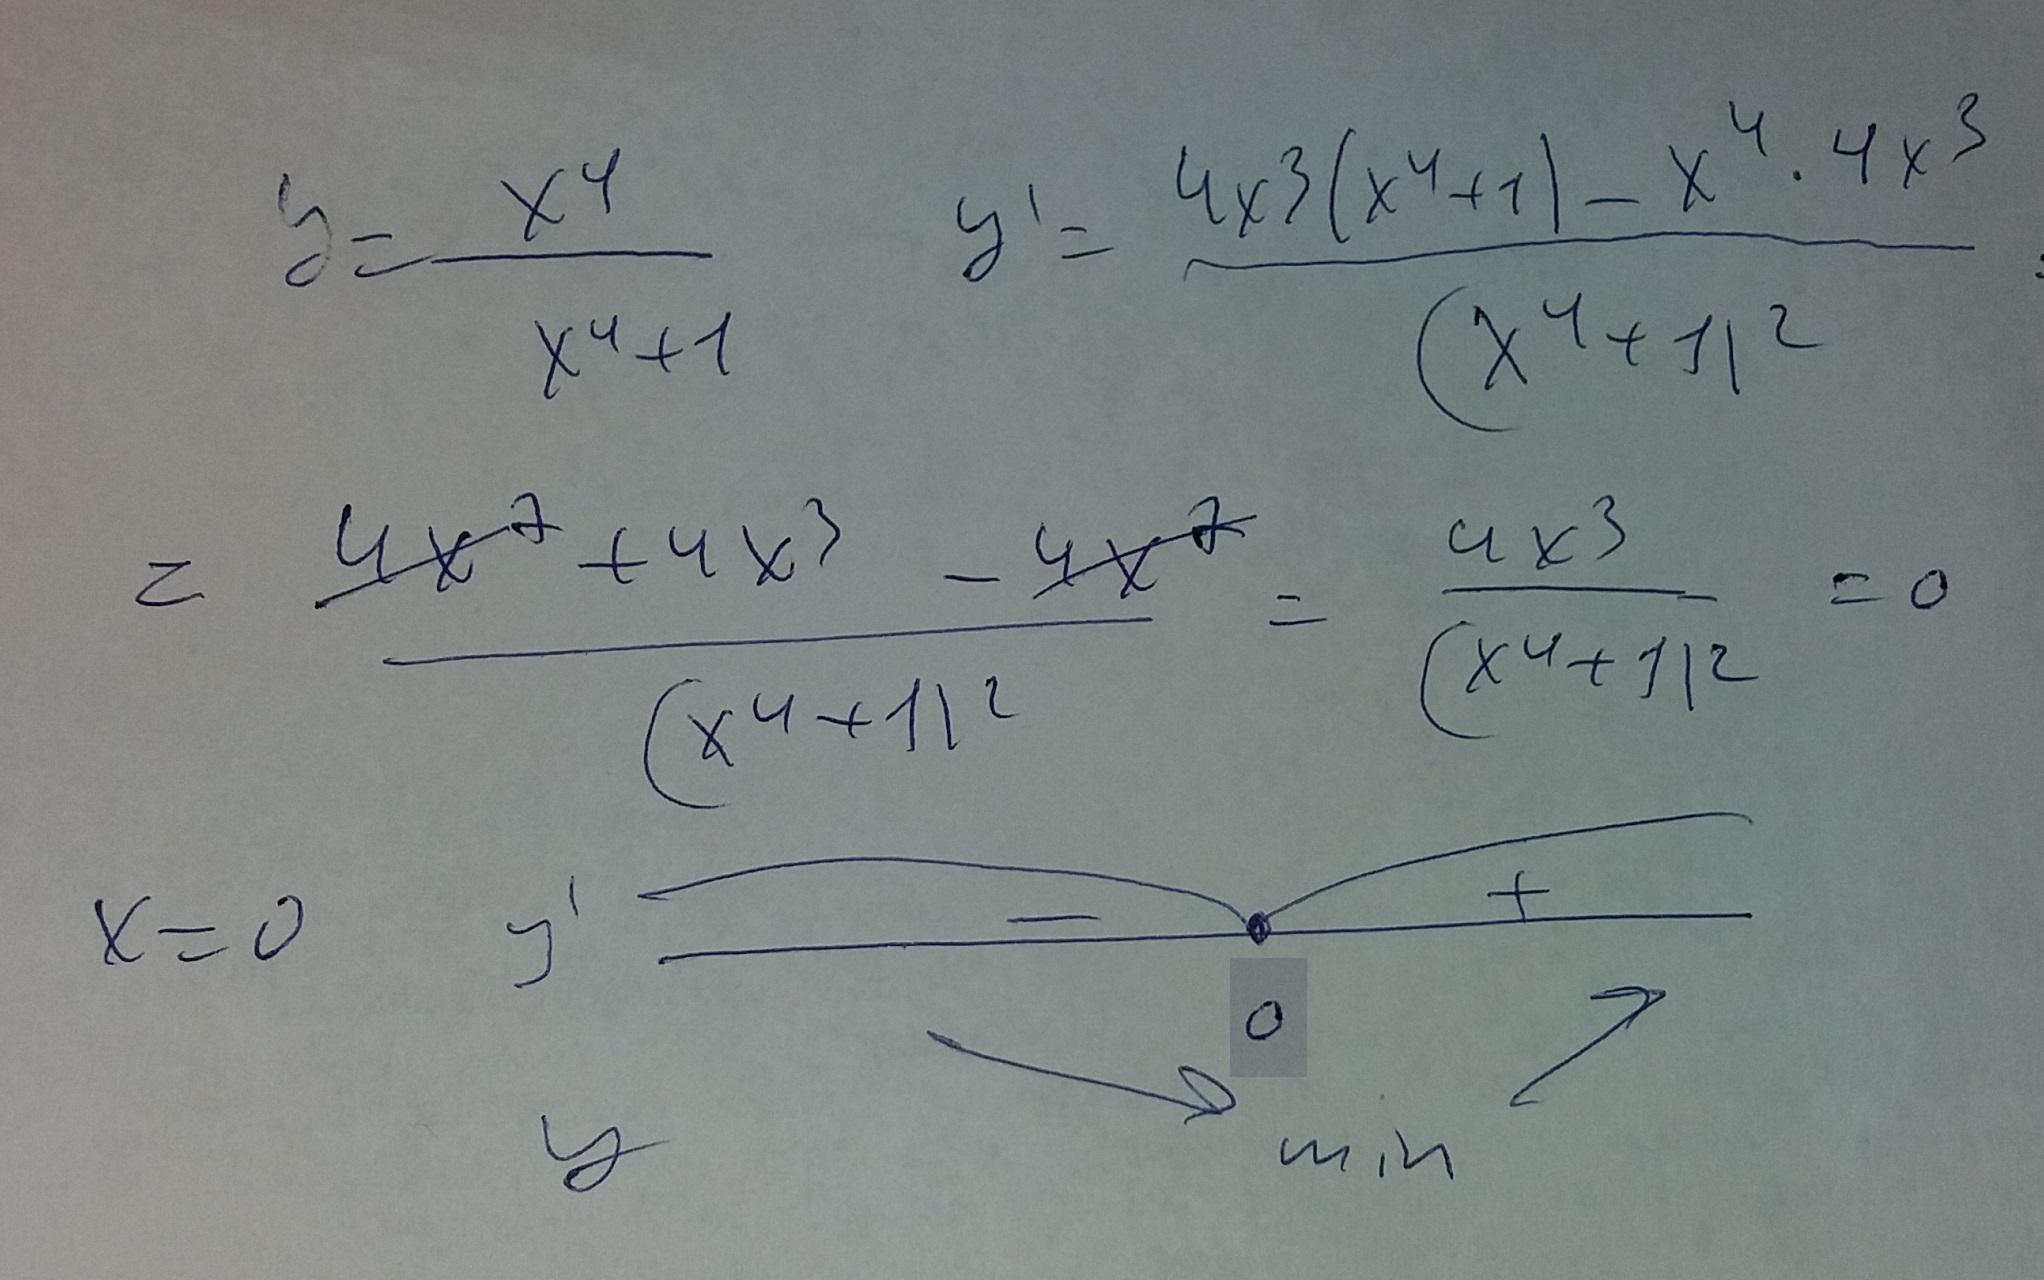 y = x⁴/(x⁴+1) y' = (4x³(x⁴+1) - x⁴·4x³)/(x⁴+1)² =
= (4x⁷+4x³ - 4x⁷)/(x⁴+1)² = 4x³/(x⁴+1)² = 0
x=0 y' - +
0
y min